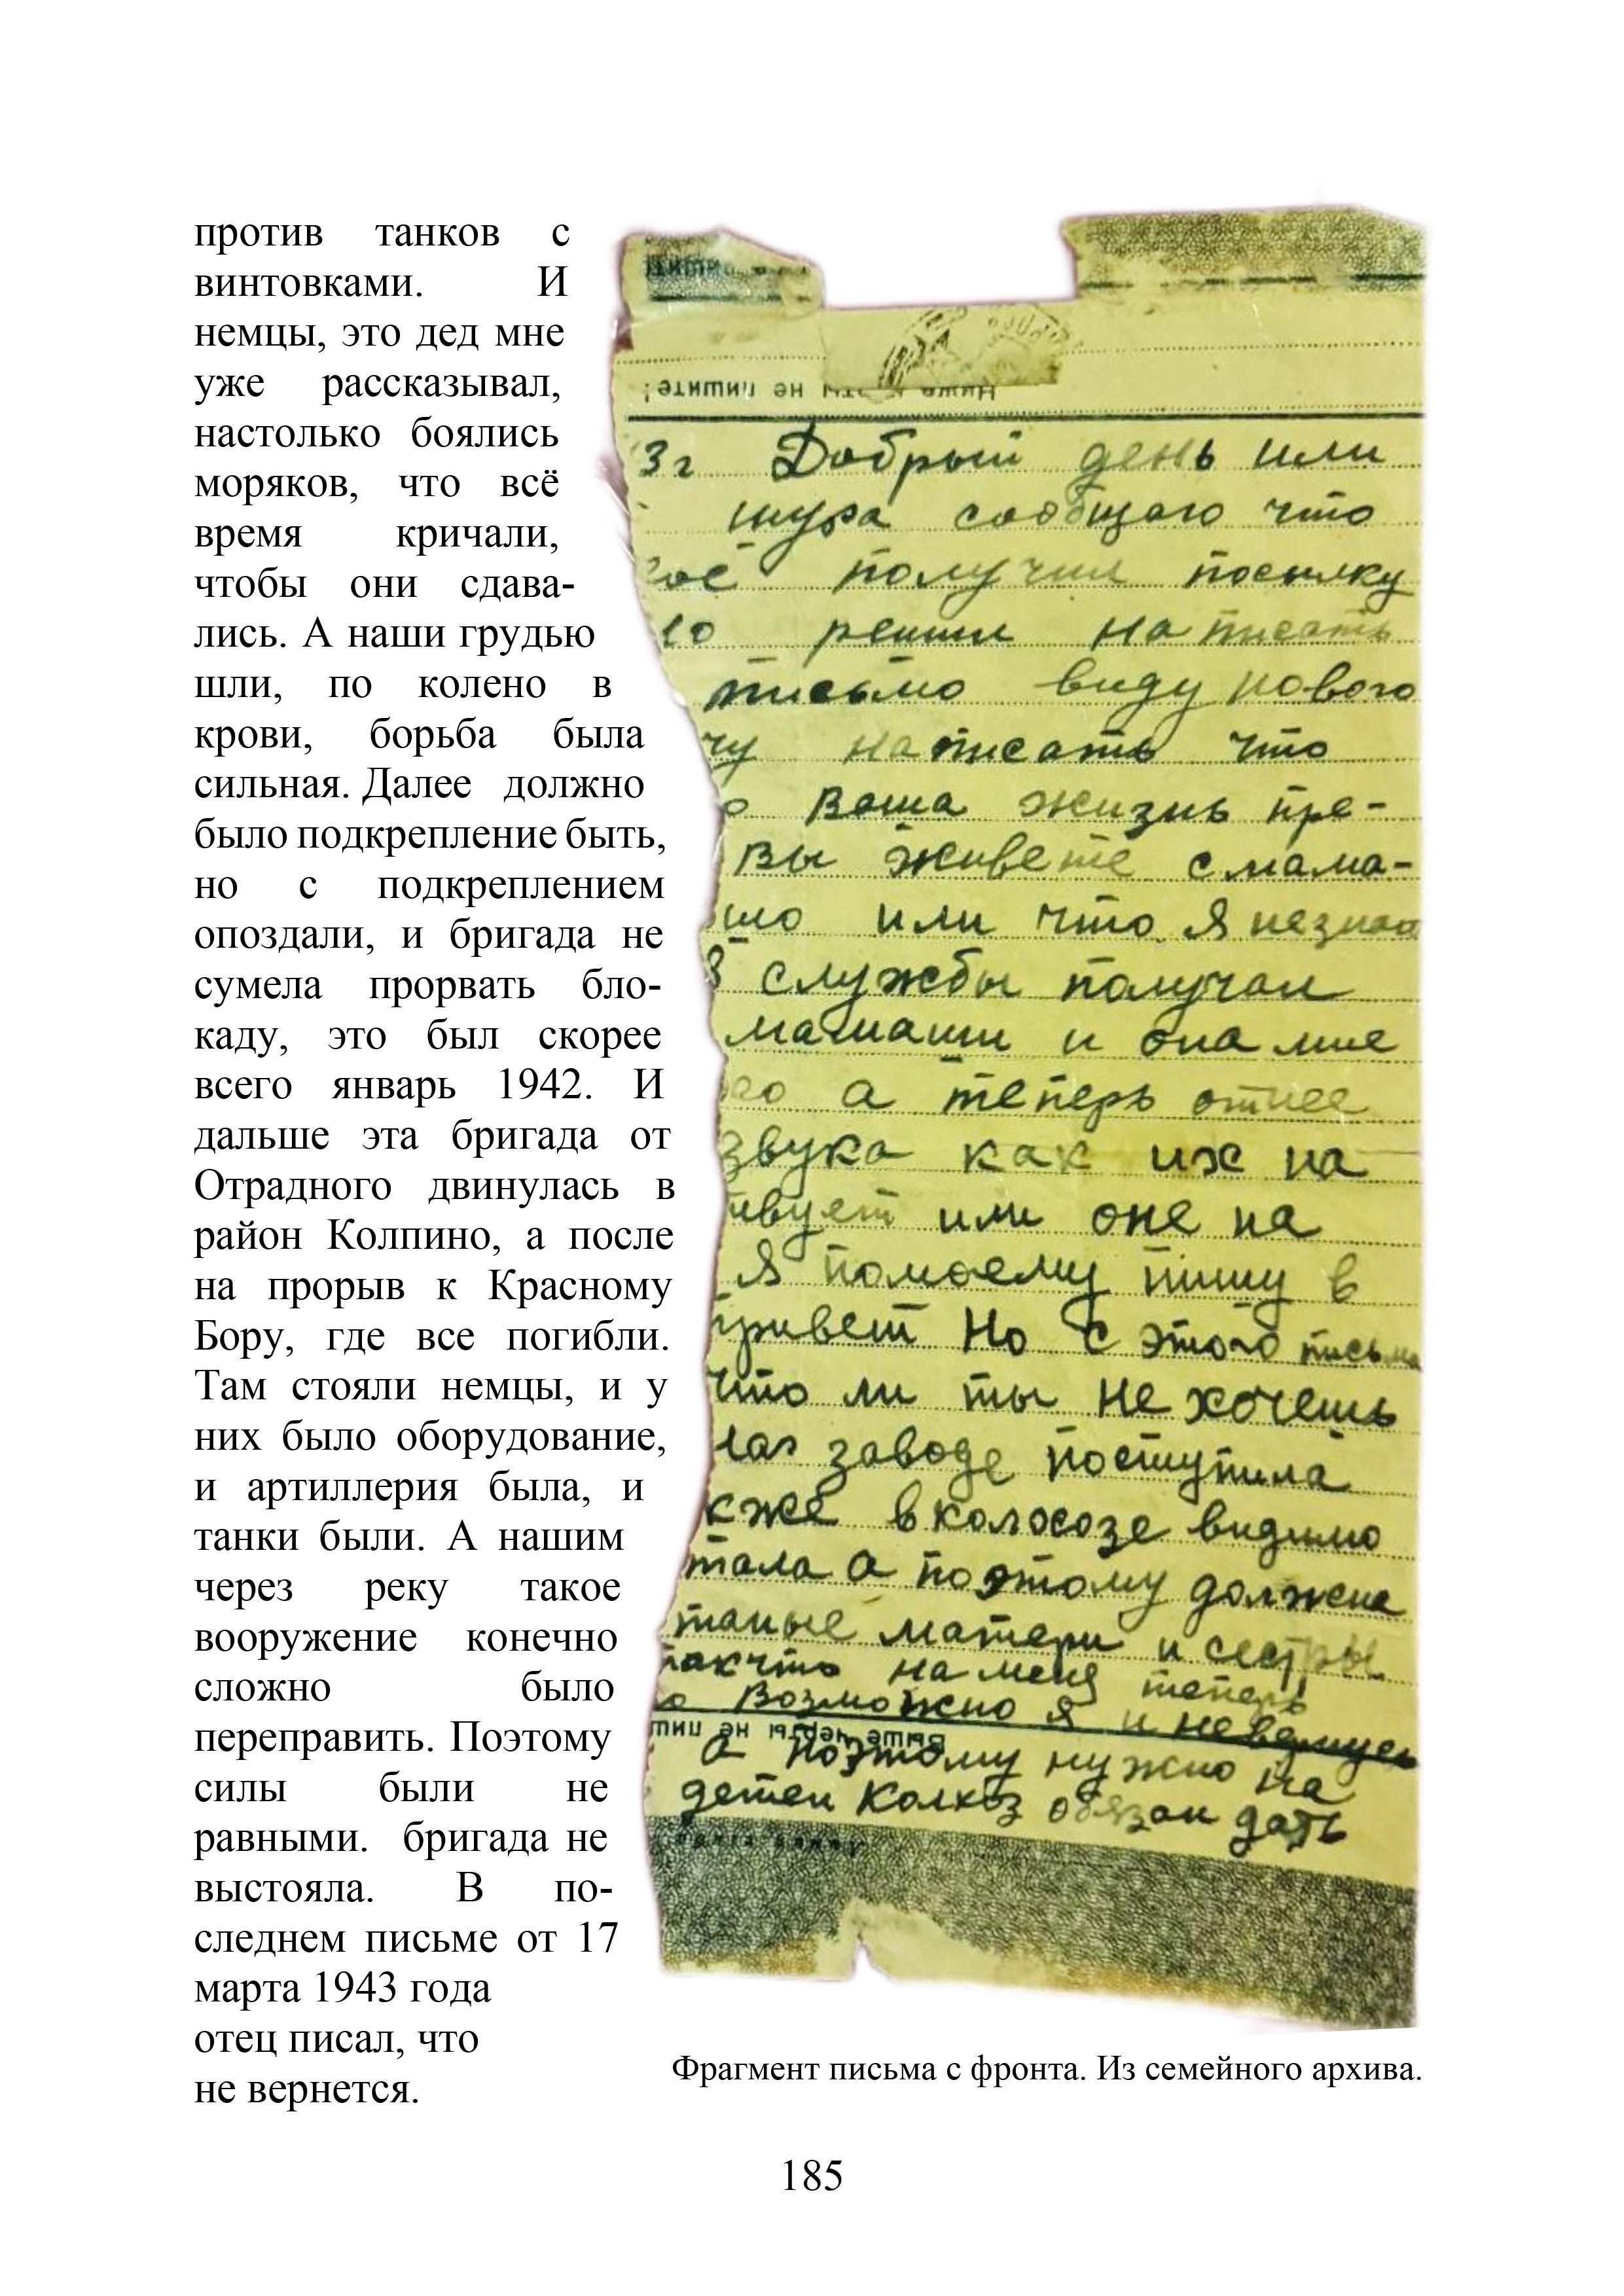 против танков с
винтовками. И
немцы, это дед мне
уже рассказывал,
настолько боялись
моряков, что всё
время кричали,
чтобы они сдава-
лись. А наши грудью
шли, по колено в
крови, борьба была
сильная. Далее должно
было подкрепление быть,
но с подкреплением
опоздали, и бригада не
сумела прорвать бло-
каду, это был скорее
всего январь 1942. И
дальше эта бригада от
Отрадного двинулась в
район Колпино, а после
на прорыв к Красному
Бору, где все погибли.
Там стояли немцы, и у
них было оборудование,
и артиллерия была, и
танки были. А нашим
через реку такое
вооружение конечно
сложно было
переправить. Поэтому
силы были не
равными. бригада не
выстояла. В по-
следнем письме от 17
марта 1943 года
отец писал, что
не вернется.
Ниже не пишите!
3г Добрый день или
шура сообщаю что
получил посылку
решил написать
письмо виду нового
написать что
Ваша жизнь пре-
Вы живете с мама-
или что Я незнаю
службы получал
мамаши и она мне
а теперь отнее
звука как их на
или оне на
Я помоему пишу в
привет Но с этого письма
что ли ты не хочешь
заводе поступила
в колосозе видимо
тала а поэтому должна
матери и сестры
такчто на меня теперь
Возможно я и невернусь
Выше черты не пиш
а поэтому нужно на
детей Колхоз обязан дать
Фрагмент письма с фронта. Из семейного архива.
185